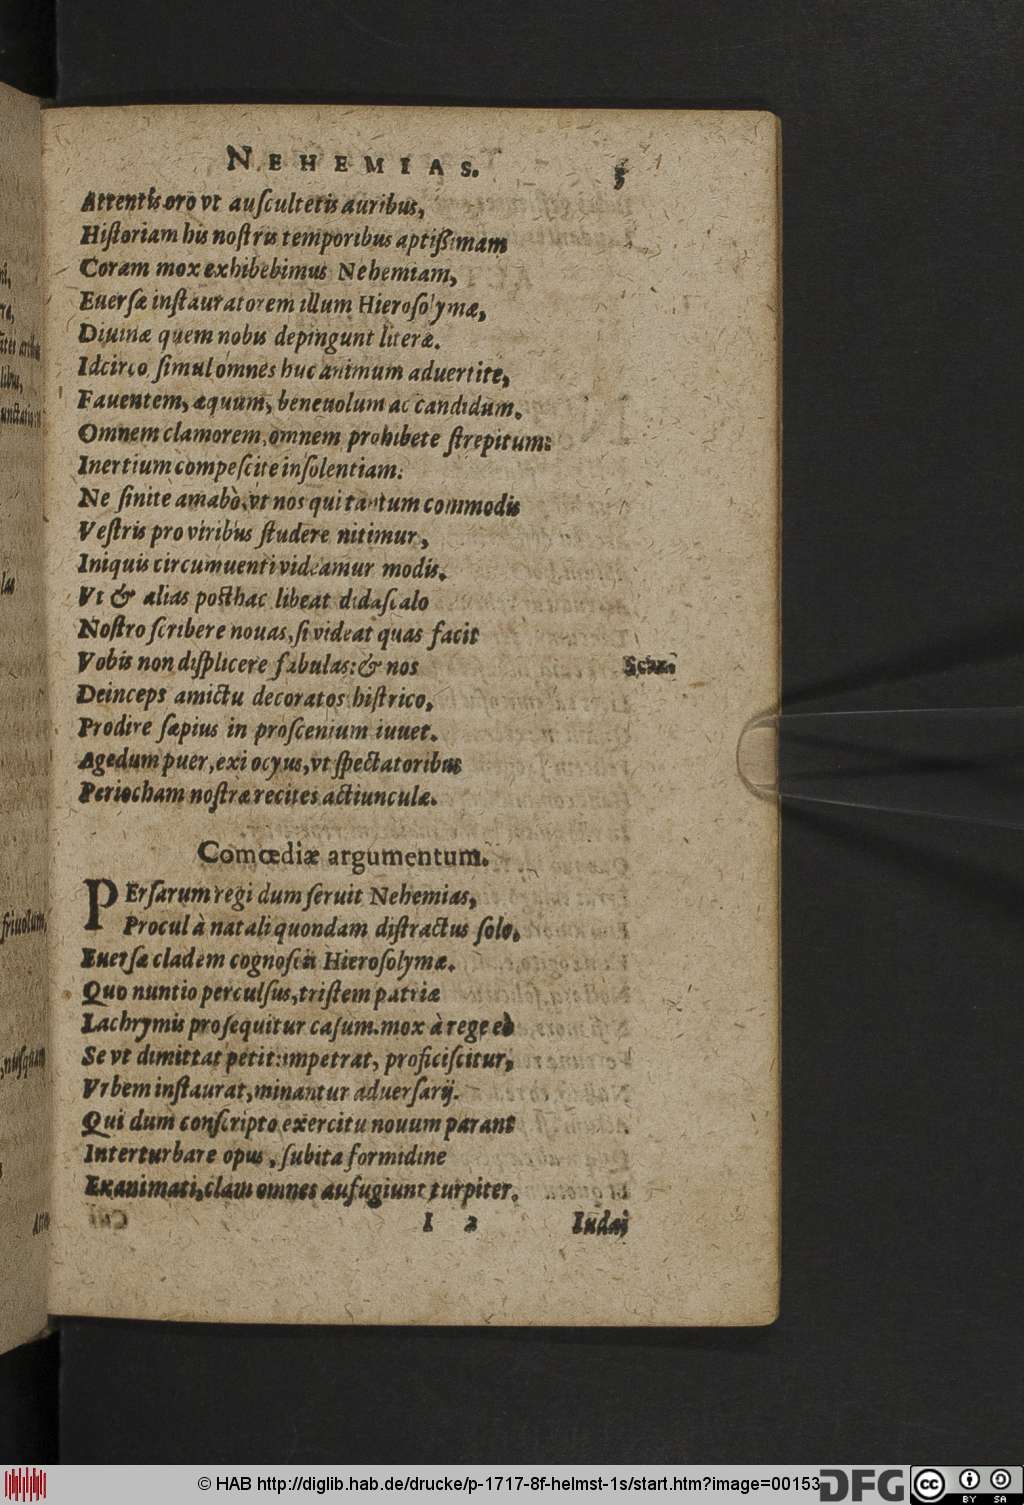 NEHEMIAS. 5
Attentis oro vt auſcultetis auribus,
Hiſtoriam his noſtris temporibus aptißimam
Coram mox exhibebimus Nehemiam,
Euerſæ inſtauratorem illum Hieroſolymæ,
Diuinæ quem nobis depingunt literæ.
Idcirco ſimul omnes huc animum aduertite,
Fauentem, æquum, beneuolum ac candidum.
Omnem clamorem, omnem prohibete ſtrepitum:
Inertium compeſcite inſolentiam:
Ne ſinite amabò, vt nos qui tantum commodis
Veſtris pro viribus ſtudere nitimur,
Iniquis circumuenti videamur modis.
Vt & alias poſthac libeat didaſcalo
Noſtro ſcribere nouas, ſi videat quas facit
Vobis non diſplicere fabulas: & nos
Scaz.
Deinceps amictu decoratos hiſtrico,
Prodire ſæpius in proſcenium iuuet.
Agedum puer, exi ocyus, vt ſpectatoribus
Periocham noſtræ recites actiunculæ.
Comœdiæ argumentum.
PErſarum regi dum ſeruit Nehemias,
Procul à natali quondam diſtractus ſolo,
Euerſæ cladem cognoſcit Hieroſolymæ.
Quo nuntio perculſus, triſtem patriæ
Lachrymis proſequitur caſum. mox à rege eò
Se vt dimittat petit: impetrat, proficiſcitur,
Vrbem inſtaurat, minantur aduerſarij.
Qui dum conſcripto exercitu nouum parant
Interturbare opus, ſubita formidine
Exanimati, clam omnes aufugiunt turpiter.
I 2 Iudæi
© HAB http://diglib.hab.de/drucke/p-1717-8f-helmst-1s/start.htm?image=00153
DFG
cc BY SA